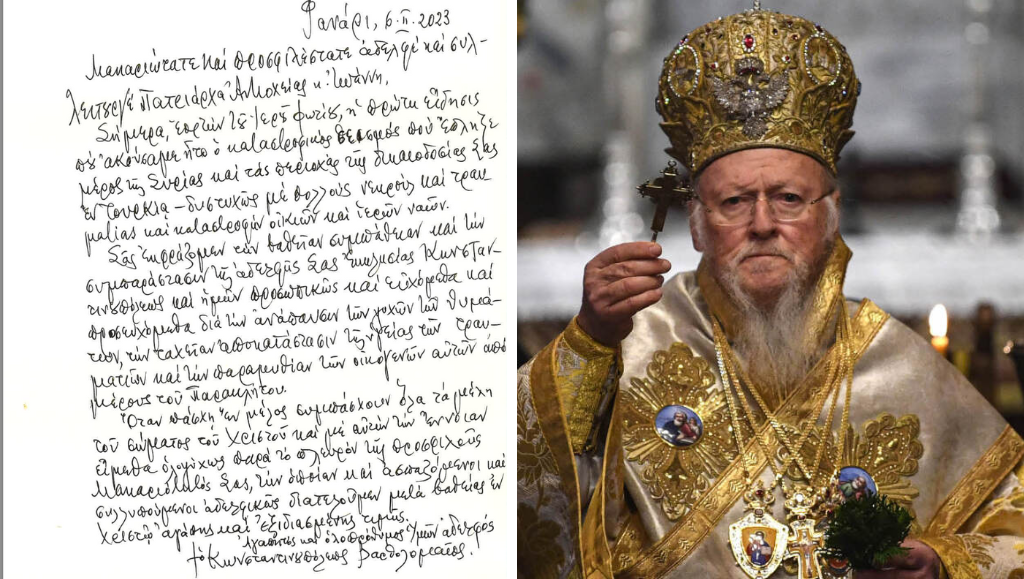 Φανάρι, 6.ΙΙ.2023
Μακαριώτατε καί προσφιλέστατε ἀδελφέ καί συλ-
λειτουργέ Πατριάρχα Ἀντιοχείας κ. Ἰωάννη,
Σήμερα, ἑορτήν τοῦ ἱεροῦ Φωτίου, ἡ πρώτη εἴδησις
πού ἀκούσαμε ἦτο ὁ καταστροφικός σεισμός πού ἔπληξε
μέρος τῆς Συρίας καί τάς περιοχάς τῆς δικαιοδοσίας Σας
ἐν Τουρκίᾳ - δυστυχῶς μέ πολλούς νεκρούς καί τραυ-
ματίας καί καταστροφήν οἰκιῶν καί ἱερῶν ναῶν.
Σᾶς ἐκφράζομεν τήν βαθεῖαν συμπάθειαν καί τήν
συμπαράστασιν τῆς ἀδελφῆς Σας Ἐκκλησίας Κωνσταν-
τινουπόλεως καί ἡμῶν προσωπικῶς καί εὐχόμεθα καί
προσευχόμεθα διά τήν ἀνάπαυσιν τῶν ψυχῶν τῶν θυμά-
των, τήν ταχεῖαν ἀποκατάστασιν τῆς ὑγείας τῶν τραυ-
ματιῶν καί τήν παραμυθίαν τῶν οἰκογενειῶν αὐτῶν ἀπό
μέρους τοῦ Παρακλήτου.
Ὅταν πάσχῃ ἕν μέλος συμπάσχουν ὅλα τά μέλη
τοῦ σώματος τοῦ Χριστοῦ καί μέ αὐτήν τήν ἔννοιαν
εἴμεθα ὁλοψύχως παρά τό πλευρόν τῆς προσφιλοῦς
Μακαριότητός Σας, τήν ὁποίαν καί ἀσπαζόμενοι καί
συλλυπούμενοι ἀδελφικῶς διατελοῦμεν μετά βαθείας ἐν
Χριστῷ ἀγάπης καί ἐξιδιασμένης τιμῆς.
Ἀγαπητός καί ὁλοπρόθυμος Ὑμῶν ἀδελφός
† ὁ Κωνσταντινουπόλεως Βαρθολομαῖος.